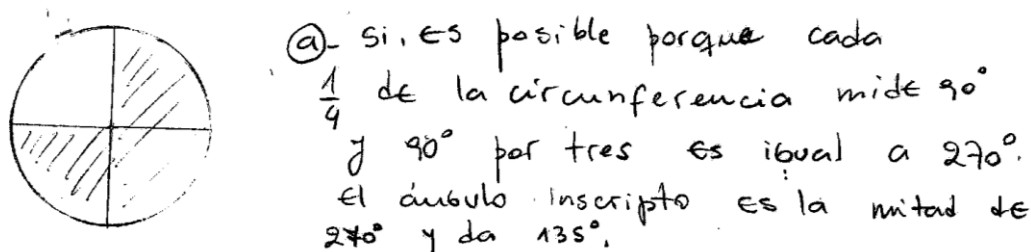 ⓐ- si, es posible porque cada
1/4 de la circunferencia mide 90°
y 90° por tres es igual a 270°.
El ángulo inscripto es la mitad de
270° y da 135°.